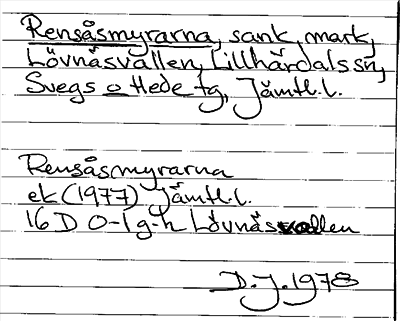 Rensåsmyrarna, sank mark,
Lövnäsvallen, Lillhärdals sn,
Svegs o Hede tg, Jämtl.l.
Rensåsmyrarna
ek (1977) Jämtl.l.
16 D 0-1 g-h Lövnäsvallen
D.J.1978